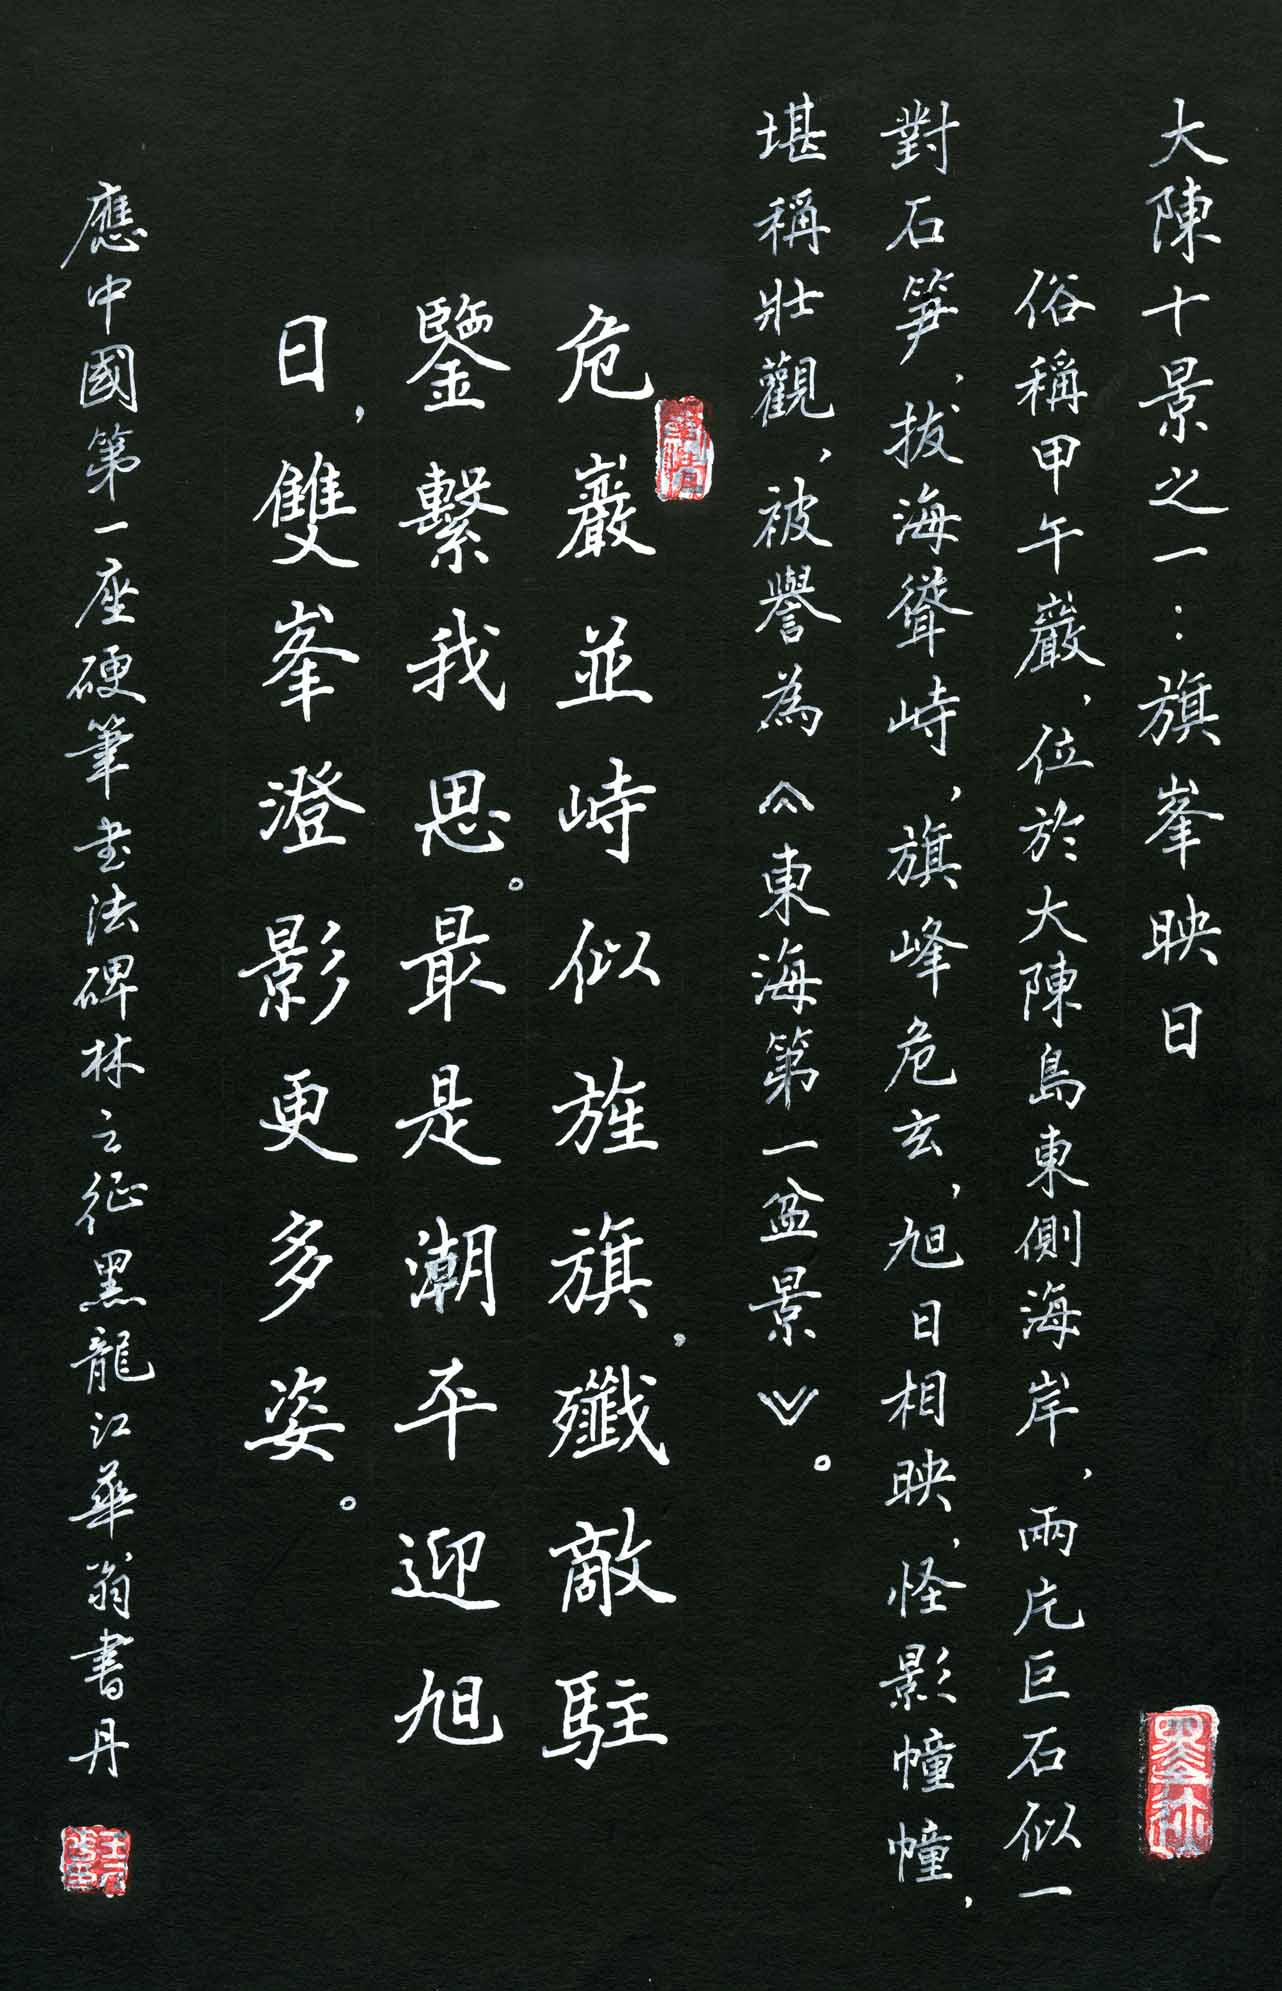 大陳十景之一：旗峯映日
俗稱甲午巖，位於大陳島東側海岸，兩片巨石似一
對石笋，拔海聳峙，旗峰危玄，旭日相映，怪影幢幢，
堪稱壯觀，被譽為《東海第一盆景》。
危巖並峙似旌旗，殲敵駐
鑒繫我思。最是潮平迎旭
日，雙峯澄影更多姿。
應中國第一座硬筆书法碑林之征黑龍江華翁書丹